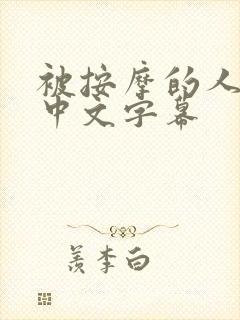 被按摩的人
中文字幕
羡李白